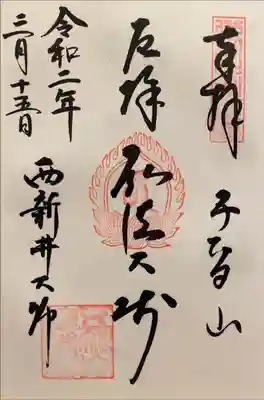 奉拝
五智山
厄除
弘法大師
令和二年
三月十五日
西新井大師